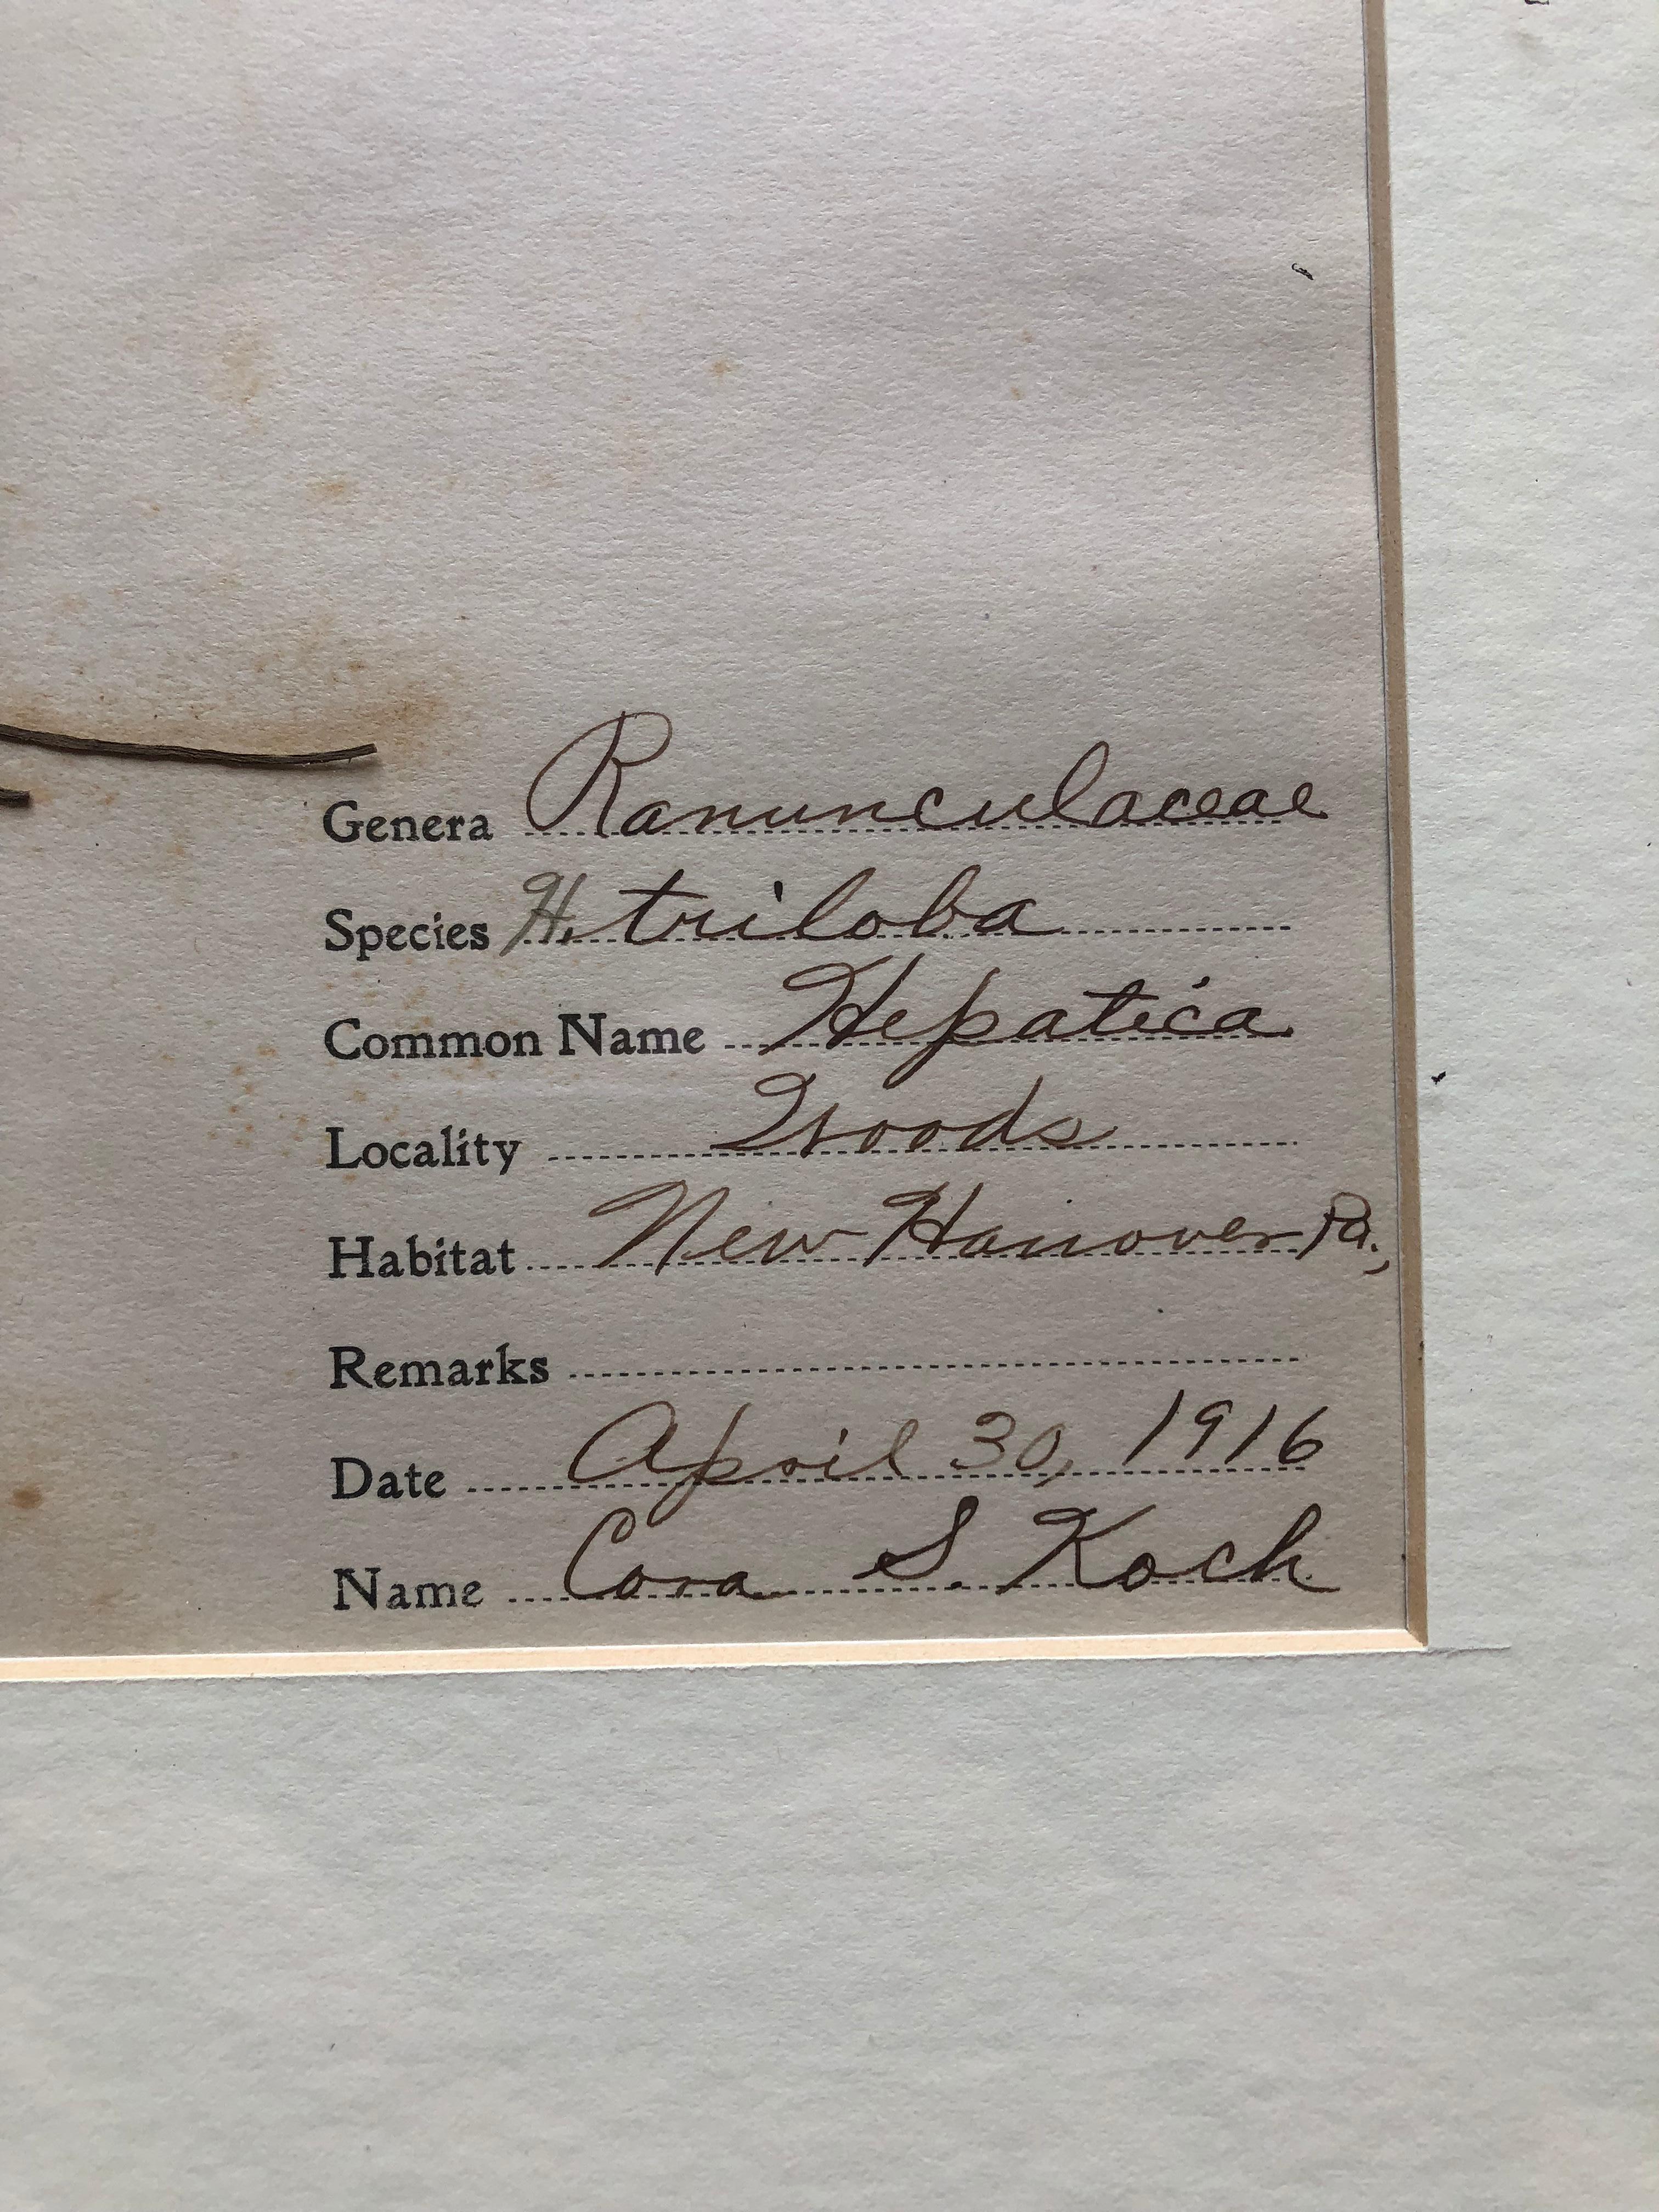 Genera Ranunculaceae
Species H. triloba
Common Name Hepatica
Locality Woods
Habitat New Hanover Pa.,
Remarks
Date April 30, 1916
Name Cora S. Koch